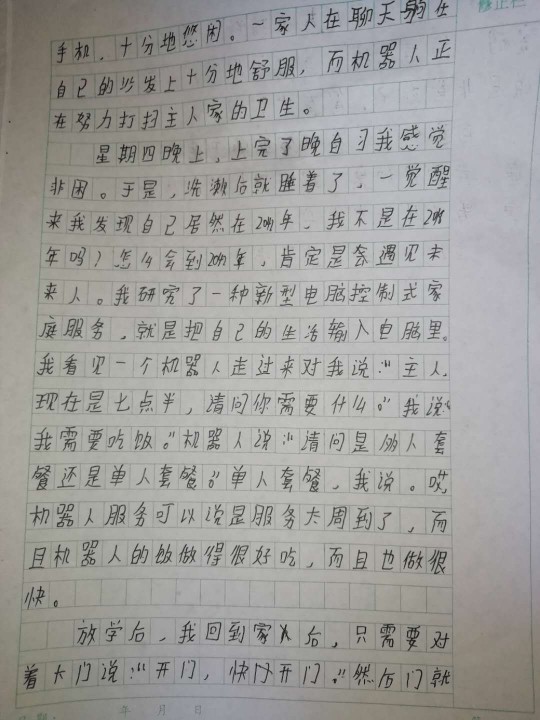 修正栏
手机，十分地悠闲。一家人在聊天躺在
自己的沙发上十分地舒服，而机器人正
在努力打扫主人家的卫生。
星期四晚上，上完了晚自习我感觉
非困。于是，洗漱后就睡着了，一觉醒
来我发现自己居然在年，我不是在
年吗？怎么会到年，肯定是会遇见未
来人。我研究了一种新型电脑控制式家
庭服务，就是把自己的生活输入电脑里。
我看见一个机器人走过来对我说：“主人，
现在是七点半，请问你需要什么。”我说：“
我需要吃饭。”机器人说：“请问是人套
餐还是单人套餐。”单人套餐，我说。哎
机器人服务可以说是服务太周到了，而
且机器人的饭做得很好吃，而且也做很
快。
放学后，我回到家后，只需要对
着大门说：“开门，快开门。”然后门就
年 月 日